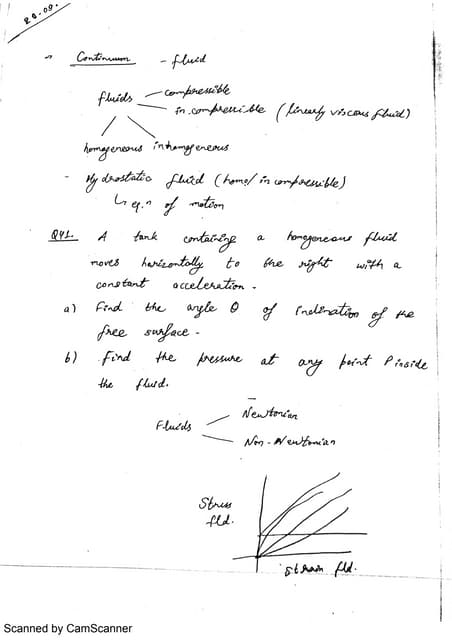 28.09.
Continuum - fluid
fluids
compressible
incompressible (linearly viscous fluid)
homogeneous inhomogeneous
- Hydrostatic fluid (homo/incompressible)
↳ eq.n of motion
Q41. A tank containing a homogeneous fluid
moves horizontally to the right with a
constant acceleration.
a) Find the angle θ of inclination of the
free surface.
b) Find the pressure at any point P inside
the fluid.
Fluids
Newtonian
Non-Newtonian
Stress
fld.
strain fld.
Scanned by CamScanner